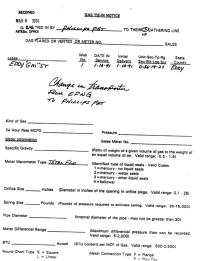 RECEIVED
GAS TIE-IN NOTICE
MAR 8 1991
GAS TIED IN BY PHILLIPS PET TO THEIR GATHERING LINE
GAS FLARED OR VENTED OR METER NO. SALES
Lease Well No. DATE IN Service Initial Delivery County
EDDY
Change in Transporter
From EPNG
To PHILLIPS PET
Kind of Gas
24 Hour Rate MCFD Pressure
Meter Information Sales Meter No.
Specific Gravity (Ratio of weight of a given volume of gas to the weight of
an equal volume of air. Valid range: 0.5 - 1.8)
Meter Manometer Type (Identified type of liquid seals) Valid Codes
1 = mercury - no liquid seals
2 = mercury - water seals
3 = mercury - other liquid seals
4 = bellows)
Orifice Size inches (Diameter in inches of the opening in orifice plate. Valid range: 0.1 - 28)
Spring Size Pounds (Pounds of pressure required to activate spring. Valid range: 20-15,000)
Pipe Diameter (Internal diameter of the pipe - may not be greater than 30)
Meter Differential Range (Maximum differential pressure than can be recorded.
Valid range: 5-2,000)
BTU (BTU content per MCF of Gas. Valid range: 500-2,500)
Round Chart Type: S = Square
L = Linear
Meter Connection Type: F = Flange
P = Pipe Tap